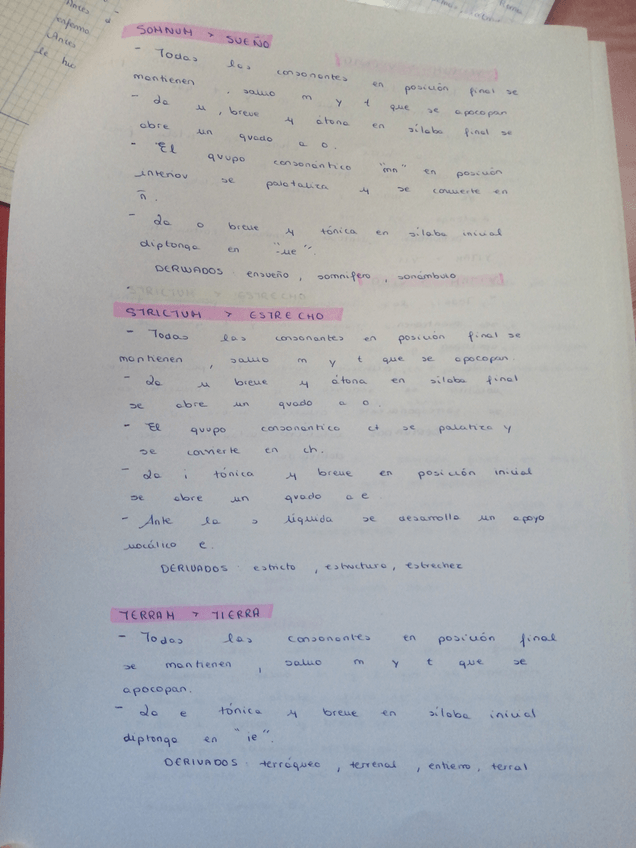 Antes
enferma
Antes
le hic
SOMNUM > SUEÑO
- Todas las consonantes en posición final se
mantienen , salvo m y t que se apocopan
- La u , breve y átona en sílaba final se
abre un grado a o.
- El grupo consonántico "mn" en posición
interior se palataliza y se convierte en
ñ.
- La o breve y tónica en sílaba inicial
diptonga en "ue".
DERIVADOS ensueño, somnífero, sonámbulo
STRICTUM > ESTRECHO
- Todas las consonantes en posición final se
mantienen , salvo m y t que se apocopan.
- La u breve y átona en sílaba final
se abre un grado a o.
- El grupo consonántico ct se palatiza y
se convierte en ch.
- La i tónica y breve en posición inicial
se abre un grado a e.
- Ante la s líquida se desarrolla un apoyo
vocálico e.
DERIVADOS estricto, estructura, estrechez
TERRAM > TIERRA
- Todas las consonantes en posición final
se mantienen , salvo m y t que se
apocopan.
- La e tónica y breve en sílaba inicial
diptonga en "ie".
DERIVADOS terráqueo, terrenal, entierro, terral